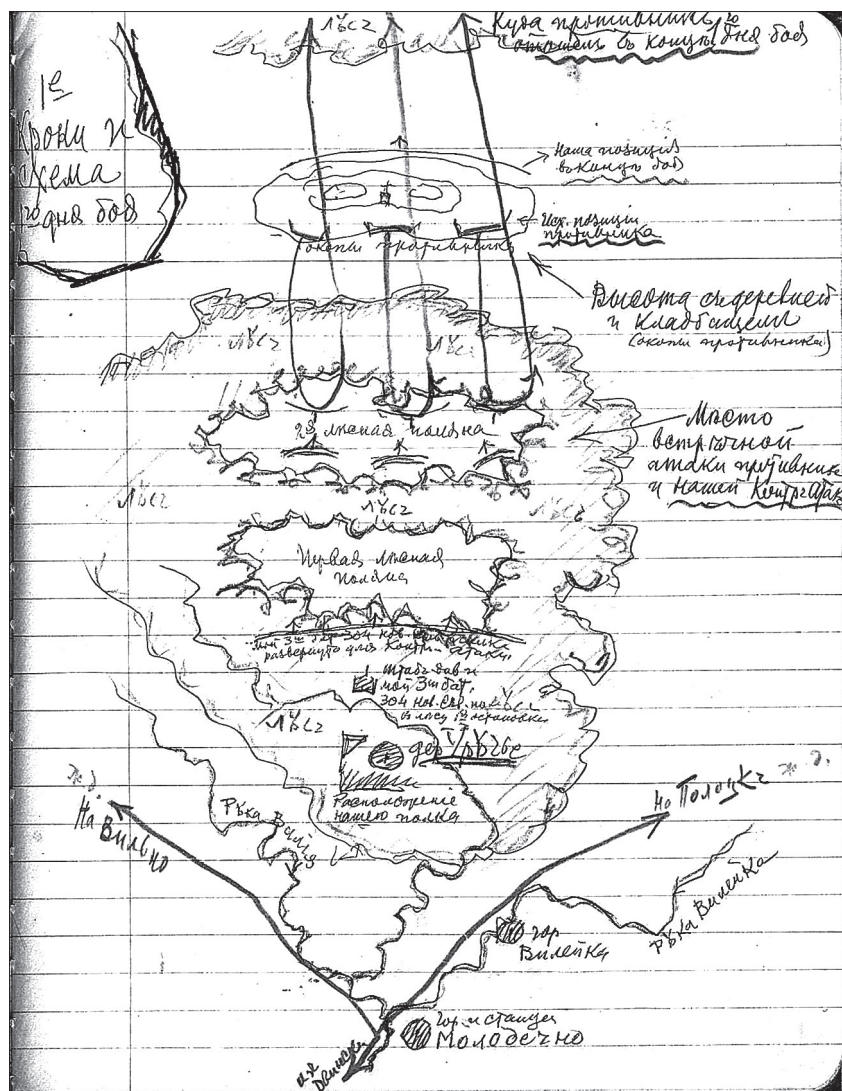 Лѣсъ
Куда противникъ
отошелъ въ концѣ дня боя
1е
Кроки и
схема
1го дня боя
Наша позиція
въ концѣ боя
Исх. позиціи
противника
(окопы противника)
Высота съ деревней
и кладбищемъ
(окопы противника)
Лѣсъ
Лѣсъ
2я лѣсная поляна
Мѣсто
встрѣчной
атаки противника
и нашей контръ-атаки
Лѣсъ
Лѣсъ
Лѣсъ
Первая лѣсная
поляна
мой 3й бат. 304 нов.
развернуто для контръ-атаки.
Штабъ див и
мой 3й бат.
304 нов.
въ лѣсу остановки
Лѣсъ
дер.
Расположеніе
нашего полка
ж. д.
На Вильно
Рѣка Вилія
На Полоцкъ ж. д.
Рѣка Вилейка
гор
Вилейка
Гор. и станція
Молодечно